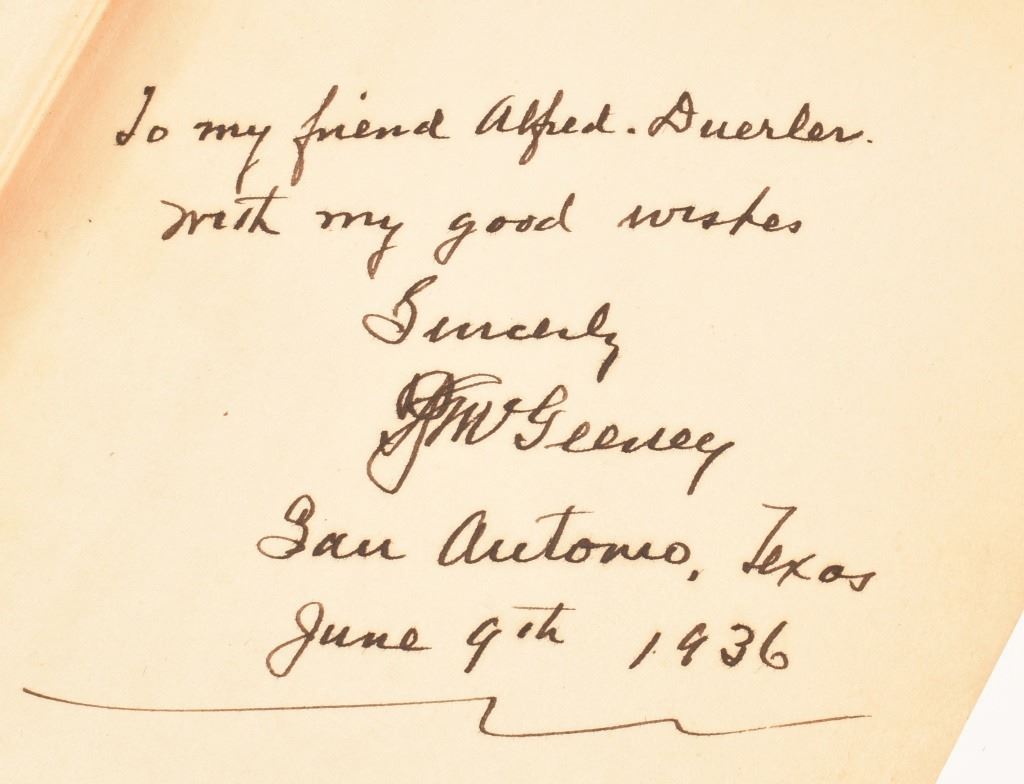 To my friend Alfred. Duerler.
with my good wishes
Sincerly
McGeeney
San Antonio, Texas
June 9th 1936